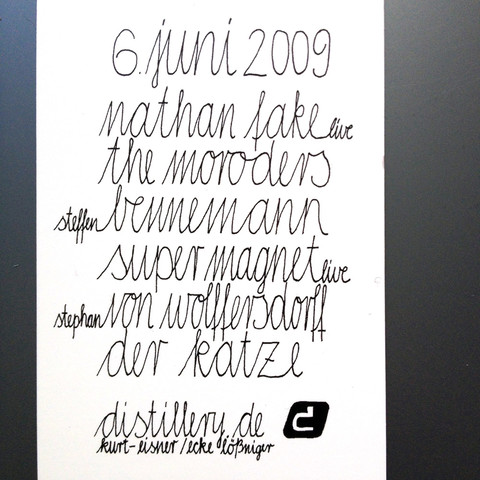 6. juni 2009
nathan fake live
the moroders
steffen bennemann
supermagnet live
stephan von wolffersdorff
der katze
distillery.de d
kurt-eisner/ecke lößniger